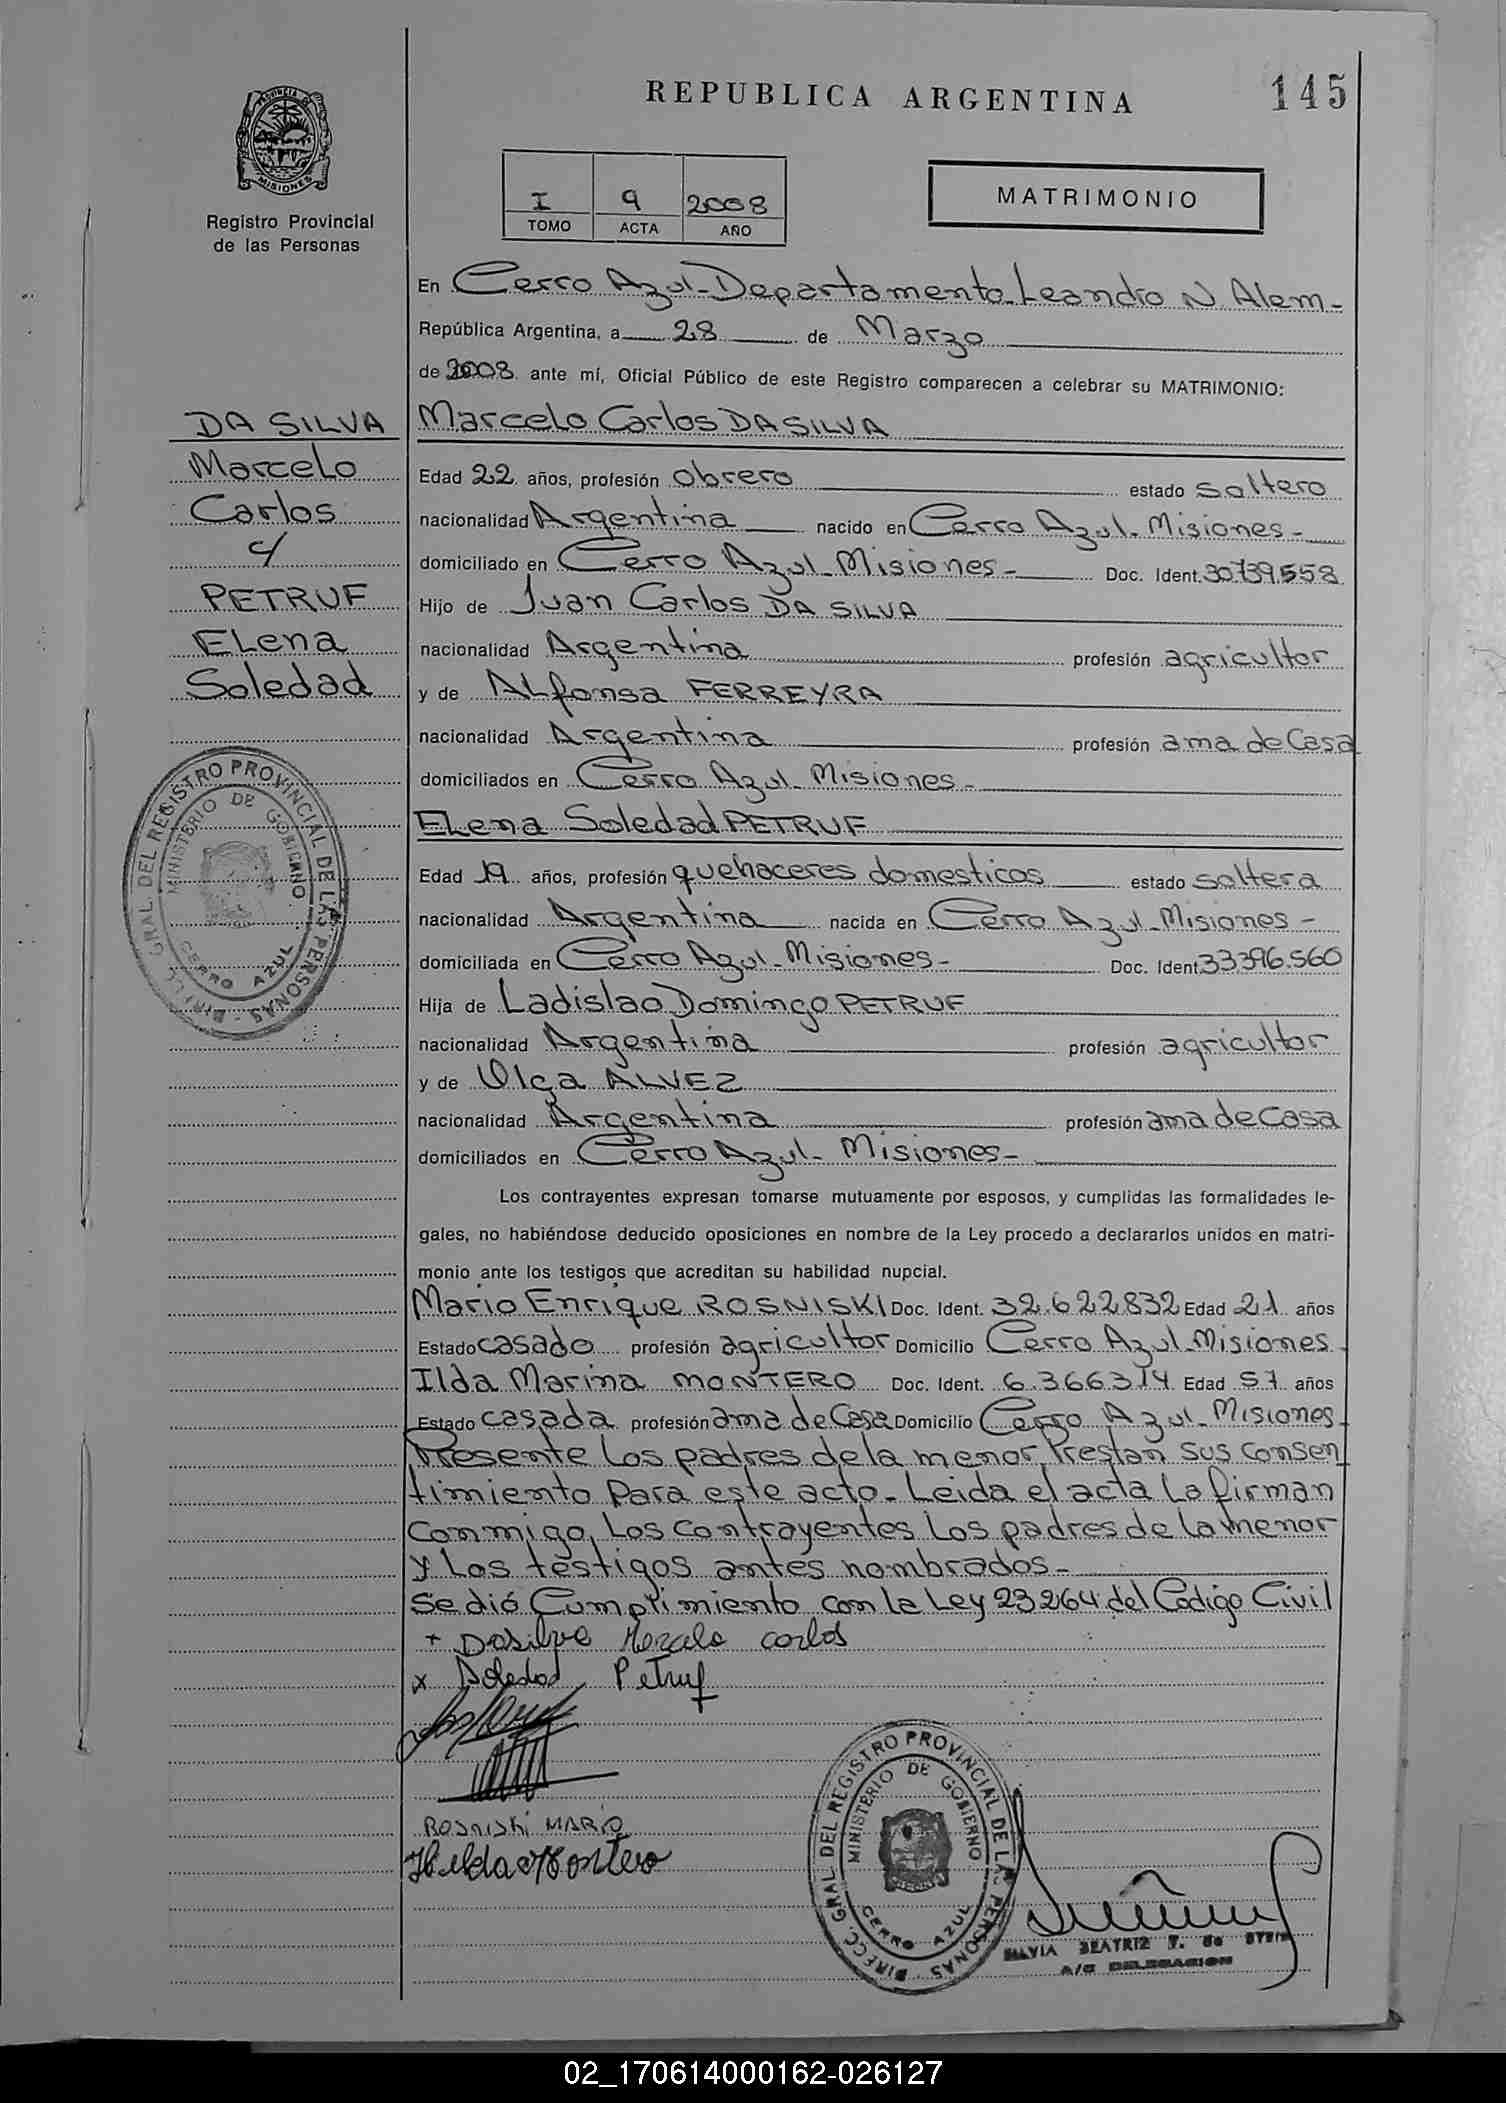 REPUBLICA ARGENTINA
145
PROVINCIA DE
MISIONES
Registro Provincial
de las Personas
I 9 2008
TOMO ACTA AÑO
MATRIMONIO
En Cerro Azul-Departamento-Leandro N. Alem-
República Argentina, a 28 de Marzo
de 2008 ante mí, Oficial Público de este Registro comparecen a celebrar su MATRIMONIO:
DA SILVA
Marcelo
Carlos
y
PETRUF
Elena
Soledad
Marcelo Carlos DA SILVA
Edad 22 años, profesión obrero estado soltero
nacionalidad Argentina nacido en Cerro Azul-Misiones-
domiciliado en Cerro Azul-Misiones- Doc. Ident. 30.739.558
Hijo de Juan Carlos DA SILVA
nacionalidad Argentina profesión agricultor
y de Alfonsa FERREYRA
nacionalidad Argentina profesión ama de Casa
domiciliados en Cerro Azul-Misiones-
Elena Soledad PETRUF
Edad 19 años, profesión quehaceres domesticos estado soltera
nacionalidad Argentina nacida en Cerro Azul-Misiones-
domiciliada en Cerro Azul-Misiones- Doc. Ident. 33.396.560
Hija de Ladislao Domingo PETRUF
nacionalidad Argentina profesión agricultor
y de Olga ALVEZ
nacionalidad Argentina profesión ama de Casa
domiciliados en Cerro Azul-Misiones-
Los contrayentes expresan tomarse mutuamente por esposos, y cumplidas las formalidades le-
gales, no habiéndose deducido oposiciones en nombre de la Ley procedo a declararlos unidos en matri-
monio ante los testigos que acreditan su habilidad nupcial.
Mario Enrique ROSNISKI Doc. Ident. 32.622.832 Edad 21 años
Estado casado profesión agricultor Domicilio Cerro Azul-Misiones-
Ilda Marina MONTERO Doc. Ident. 6.366.314 Edad 57 años
Estado casada profesión ama de Casa Domicilio Cerro Azul-Misiones-
Presente los padres de la menor, Prestan sus consen
timiento para este acto-Leida el acta la firman
Conmigo, los contrayentes los padres de la menor
y los testigos antes nombrados-
Se dió Cumplimiento con la Ley 23264 del Codigo Civil
+ Dasilva Marcelo carlos
x Soledad Petruf
ROSNISKI MARIO
Hilda Montero
DIRECC. GRAL. DEL REGISTRO PROVINCIAL DE LAS PERSONAS
MINISTERIO DE GOBIERNO
CERRO AZUL
DIRECC. GRAL. DEL REGISTRO PROVINCIAL DE LAS PERSONAS
MINISTERIO DE GOBIERNO
CERRO AZUL
SILVIA BEATRIZ F. de STEIN
A/C DELEGACION
02_170614000162-026127